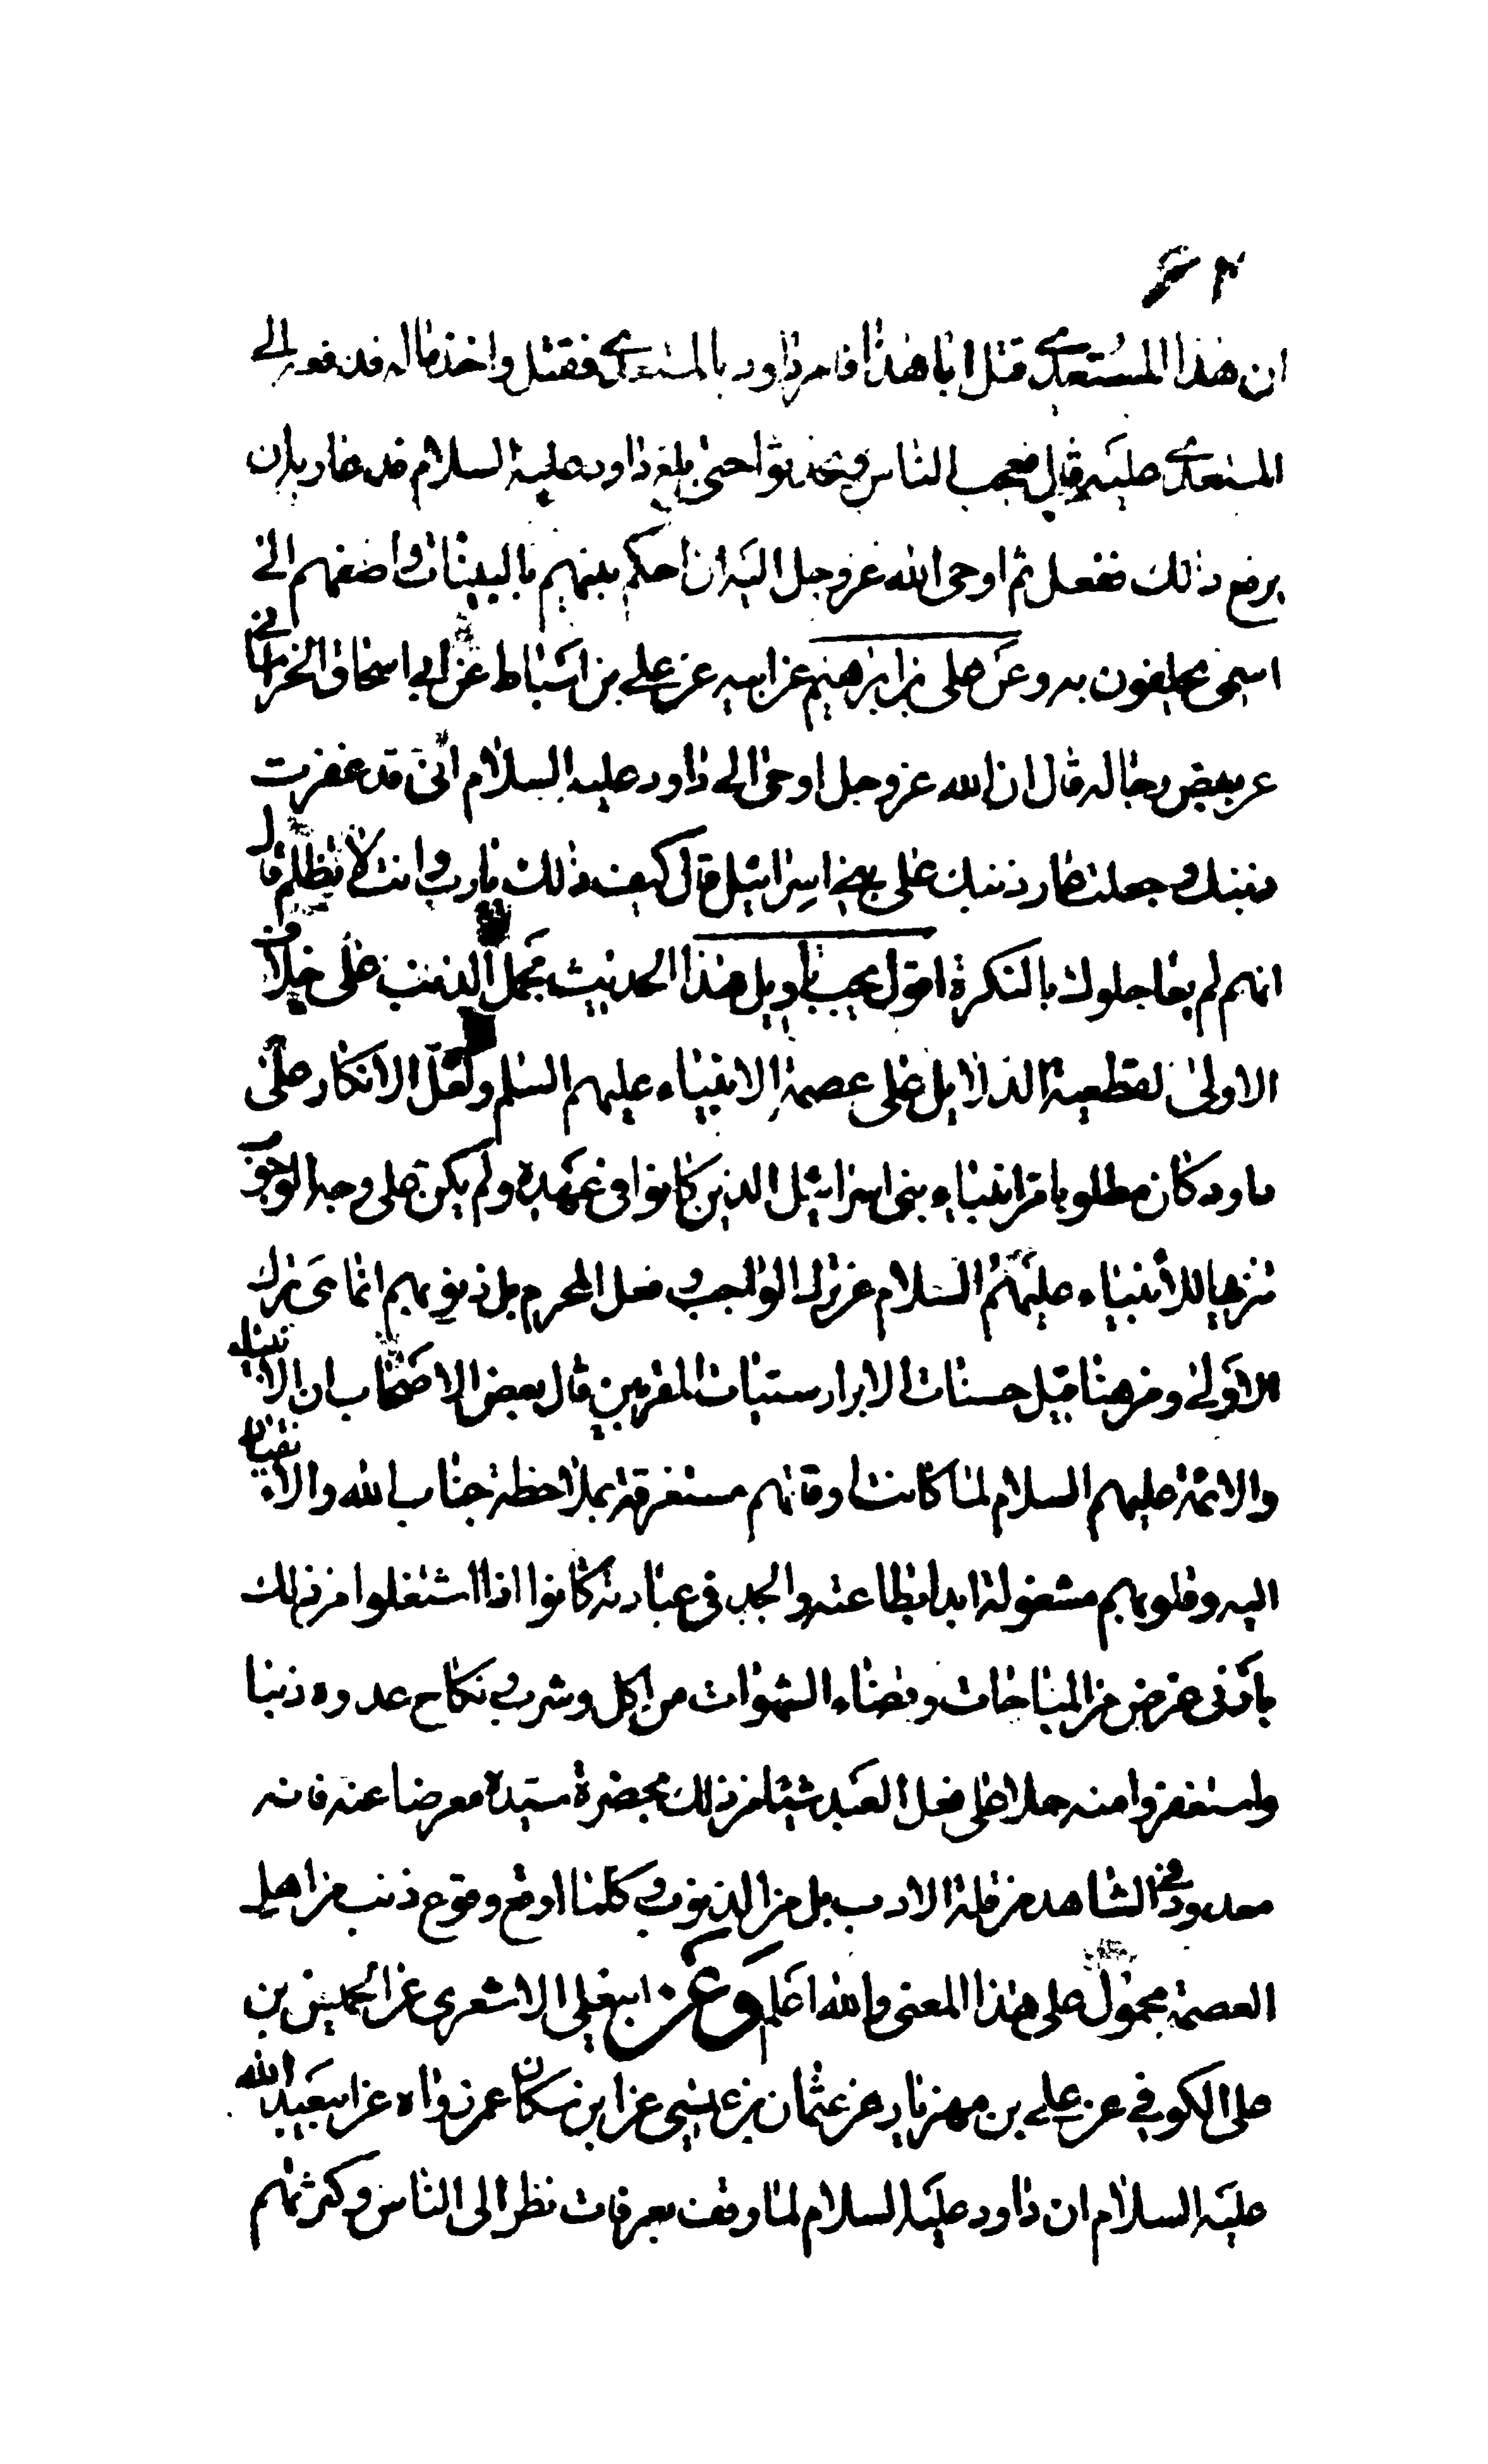 ان هذا المستعدى قتل ابا هذا فامر داود بالمستعدى فقتل واخذ ماله فدفعه الى
المستعدى عليه قال فعجب الناس وتحدثوا حتى بلغ داود عليه السلام فدعا ربه ان
يرفع ذلك ففعل ثم اوحى الله عز وجل اليه ان احكم بينهم بالبينات واضفهم الى
اسمى يحلفون به وعن على بن ابرهيم عن ابيه عن على بن اسباط عن ابى اسحاق الخراسانى
عن بعض رجاله قال ان الله عز وجل اوحى الى داود عليه السلام انى قد غفرت
ذنبك وجعلت عار ذنبك على بنى اسرائيل قال كيف ذلك يا رب وانت لا تظلم قال
انهم لم يعاجلوك بالنكرة اقول يجب تاويل هذا الحديث بحمل الذنب على خلاف
الاولى لقطعية الدلايل على عصمة الانبياء عليهم السلم ولعل الانكار على
داود كان مطلوبا من انبياء بنى اسرائيل الذين كانوا فى عهده ولم يكن على وجه الوجوب
تنزيها للانبياء عليهم السلام عن ترك الواجب وفعل المحرم بل ذنوبهم انما هى ترك
الاولى ومن هنا قيل حسنات الابرار سيئات المقربين قال بعض الاصحاب ان الانبياء
والائمة عليهم السلام لما كانت اوقاتهم مستغرقة بملاحظة جناب الله والانقياد
اليه وقلوبهم مشغولة ابدا بطاعته والجد فى عبادته كانوا اذا اشتغلوا من ذلك
بادنى غرض من المباحات وقضاء الشهوات من اكل وشرب ونكاح عدوه ذنبا
واستغفروا منه حملا على فعل العبد شيئا من ذلك بحضرة سيده معرضا عنه فانه
معدود فى الشاهد من قلة الادب بل من الذنوب وكلما اوقع وقوع ذنب من اهل
العصمة محمول على هذا المعنى والله اعلم وعن ابى على الاشعرى عن الحسين بن
على الكوفى عن على بن مهزيار عن عثمان بن عيسى عن ابن مسكان عمن رواه عن ابى عبد الله
عليه السلام ان داود عليه السلام لما وقف بعرفات نظر الى الناس وكثرتهم